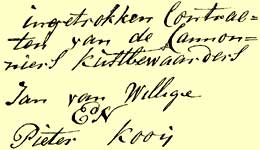 ingetrokken Contrac=
ten van de Cannon=
niers kustbewaarders
Jan van Willige
EN
Pieter Kooij